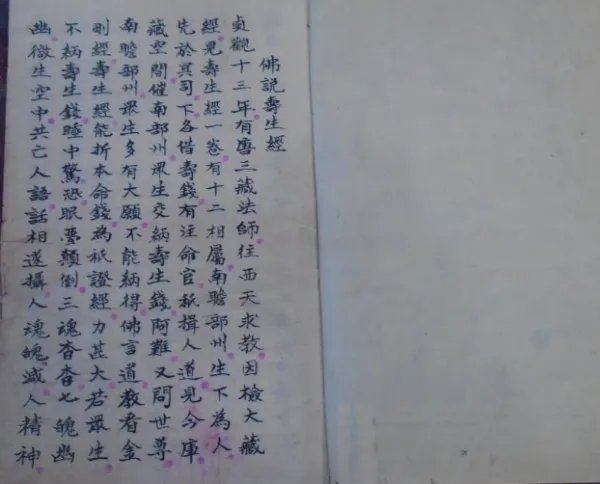 佛説壽生經
貞觀十三年有唐三藏法師往西天求教因檢大藏
經見壽生經一卷有十二相屬南瞻部州生下為人
先於冥司下各借壽錢有注命官秖揖人道見今庫
藏空閑催南部州眾生交納壽生錢阿難又問世尊
南瞻部州眾生多有大願不能納得佛言道教看金
剛經壽生經能折本命錢為秖證經力甚大若眾生
不納壽生錢睡中驚恐眠夢顛倒三魂杳杳七魄幽
幽微生空中共亡人語話相逐攝人魂魄滅人精神